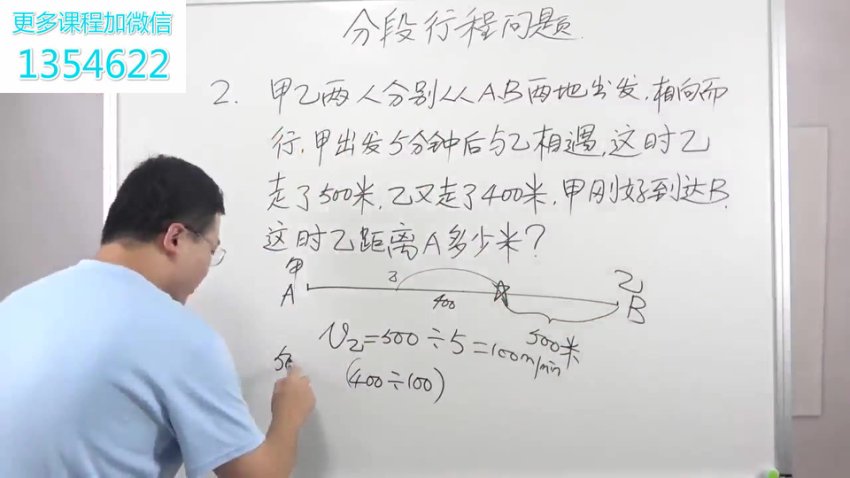 更多课程加微信
1354622
分段行程问题.
2. 甲乙两人分别从A.B两地出发.相向而
行.甲出发5分钟后与乙相遇.这时乙
走了500米.乙又走了400米.甲刚好到达B.
这时乙距离A多少米?
甲
A
乙
400
乙
B
500米
V乙=500÷5=100m/min
(400÷100)